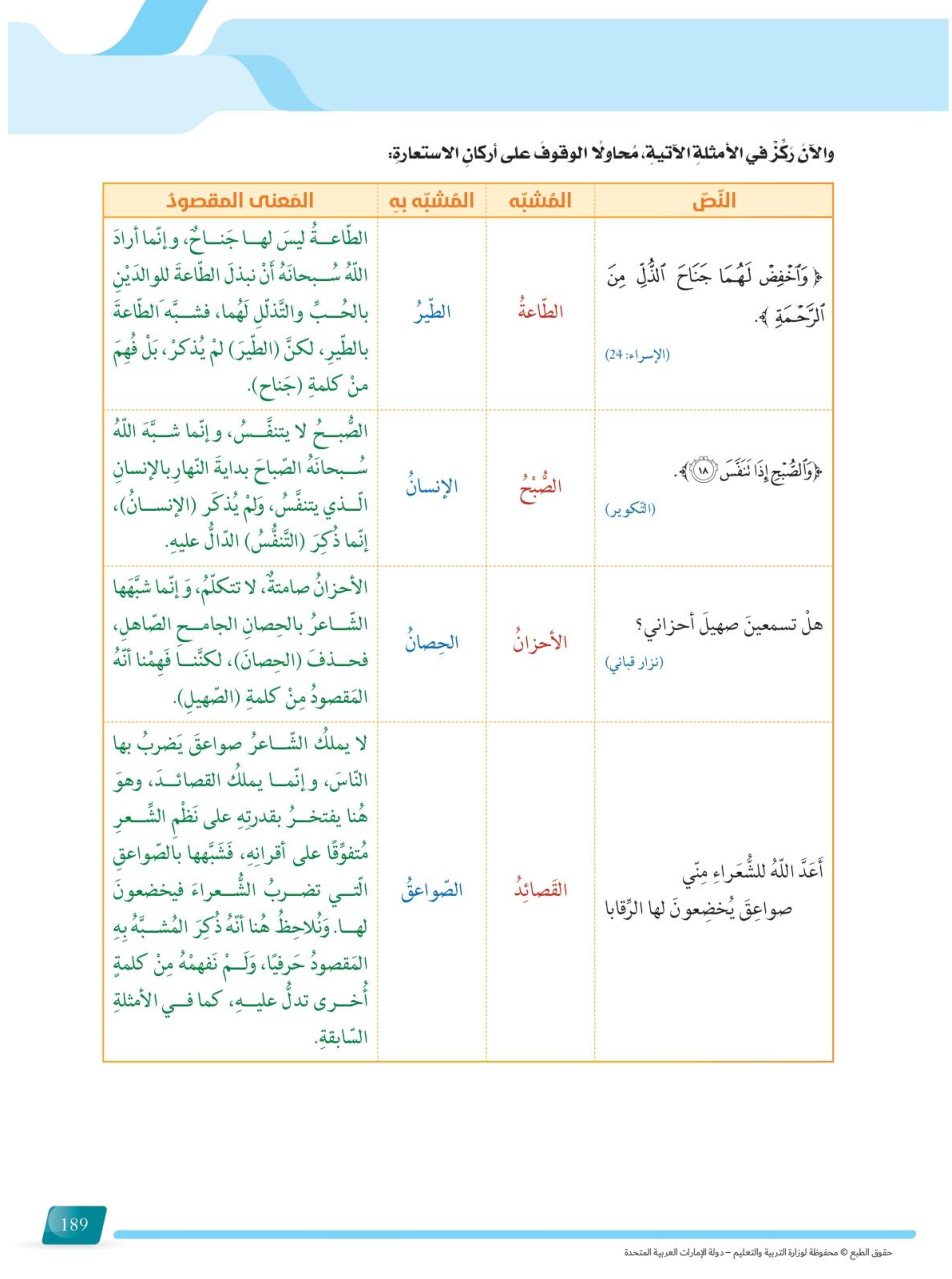 والآنَ رَكِّزْ في الأمثلةِ الآتيةِ، مُحاولًا الوقوفَ على أركانِ الاستعارةِ:
النّصّ
المُشبّه
المُشبّه بهِ
المَعنى المقصودُ
﴿ وَٱخۡفِضۡ لَهُمَا جَنَاحَ ٱلذُّلِّ مِنَ
ٱلرَّحۡمَةِ ﴾.
(الإسراء: 24)
الطّاعةُ
الطّيرُ
الطّاعــةُ ليسَ لهـا جَنـاحٌ، وإنّما أرادَ
اللّهُ سُـبحانَهُ أَنْ نبذلَ الطّاعةَ للوالدَيْنِ
بالحُــبِّ والتَّذلّلِ لَهُما، فشـبَّه الطّاعةَ
بالطّيرِ، لكنَّ (الطّيرَ) لمْ يُذكرْ، بَلْ فُهِمَ
منْ كلمةِ (جَناح).
﴿وَٱلصُّبۡحِ إِذَا تَنَفَّسَ ١٨﴾.
(التّكوير)
الصُّبْحُ
الإنسانُ
الصُّبــحُ لا يتنفَّــسُ، وإنّما شـبَّهَ اللّهُ
سُـبحانَهُ الصّباحَ بدايةَ النّهارِ بالإنسانِ
الّـذي يتنفَّسُ، وَلمْ يُذكَر (الإنســانُ)،
إنّما ذُكِرَ (التَّنفُّسُ) الدّالُّ عليهِ.
هلْ تسمعينَ صهيلَ أحزاني؟
(نزار قباني)
الأحزانُ
الحِصانُ
الأحزانُ صامتةٌ، لا تتكلّمُ، وَإنّما شبَّهَها
الشّـاعرُ بالحِصانِ الجامـحِ الصّاهلِ،
فحـذفَ (الحِصانَ)، لكنَّنـا فَهِمْنا أنّهُ
المَقصودُ مِنْ كلمةِ (الصّهيلِ).
أَعَدَّ اللّهُ للشُّعَراءِ مِنّي
صواعِقَ يُخضِعونَ لها الرِّقابا
القَصائِدُ
الصّواعقُ
لا يملكُ الشّـاعرُ صواعقَ يَضرِبُ بها
النّاسَ، وإنّمـا يملكُ القصائـدَ، وهوَ
هُنا يفتخـرُ بقدرتِهِ على نَظْمِ الشِّـعرِ
مُتفوِّقًا على أقرانِهِ، فَشَبَّهها بالصّواعقِ
الّتـي تضـربُ الشُّـعراءَ فيخضعونَ
لهـا. وَنُلاحِظُ هُنا أنّهُ ذُكِرَ المُشـبَّهُ بهِ
المَقصودُ حَرفيًا، وَلَـمْ نَفهمْهُ مِنْ كلمةٍ
أُخـرى تدلُّ عليـهِ، كما فـي الأمثلةِ
السّابقةِ.
189
حقوق الطبع © محفوظة لوزارة التربية والتعليم – دولة الإمارات العربية المتحدة